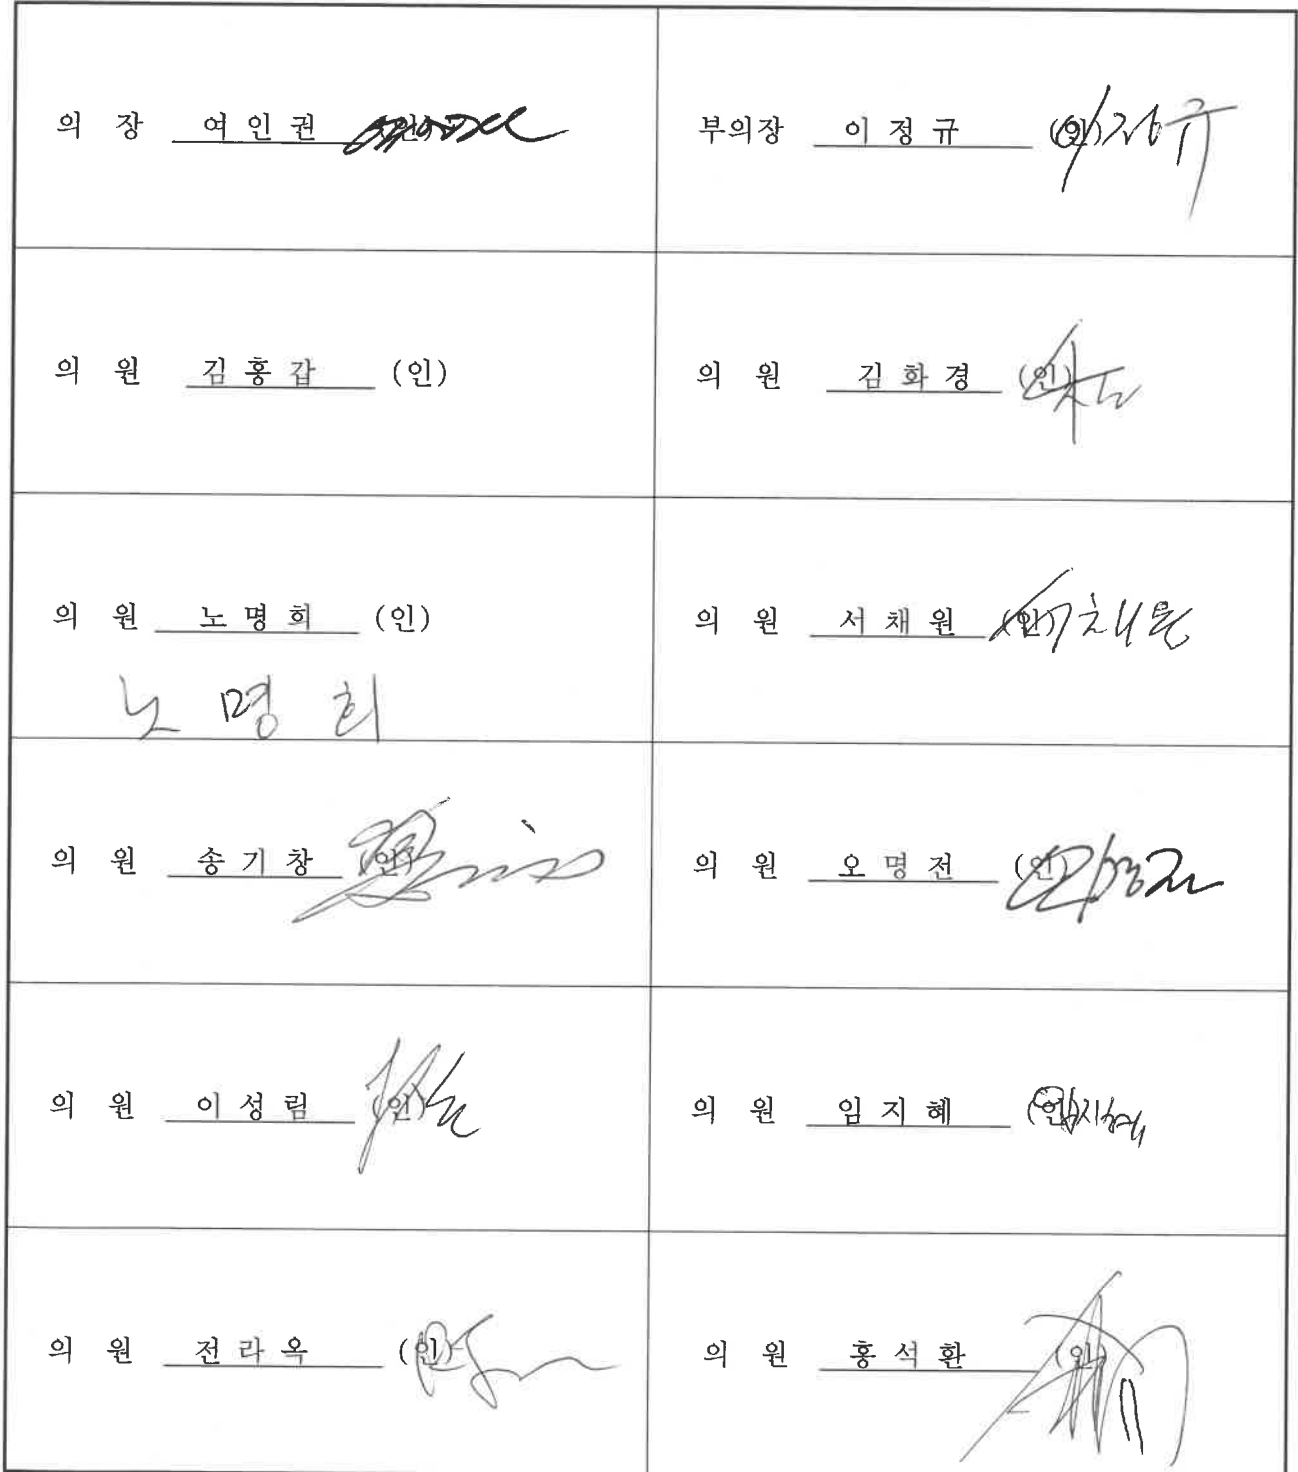 의 장 여 인 권 (인)
부의장 이 정 규 (인) 이정규
의 원 김 홍 갑 (인)
의 원 김 화 경 (인)
의 원 노 명 희 (인)
노 명 희
의 원 서 채 원 (인) 서채원
의 원 송 기 창 (인)
의 원 오 명 전 (인) 오명전
의 원 이 성 림 (인)
의 원 임 지 혜 (인) 임지혜
의 원 전 라 옥 (인)
의 원 홍 석 환 (인)